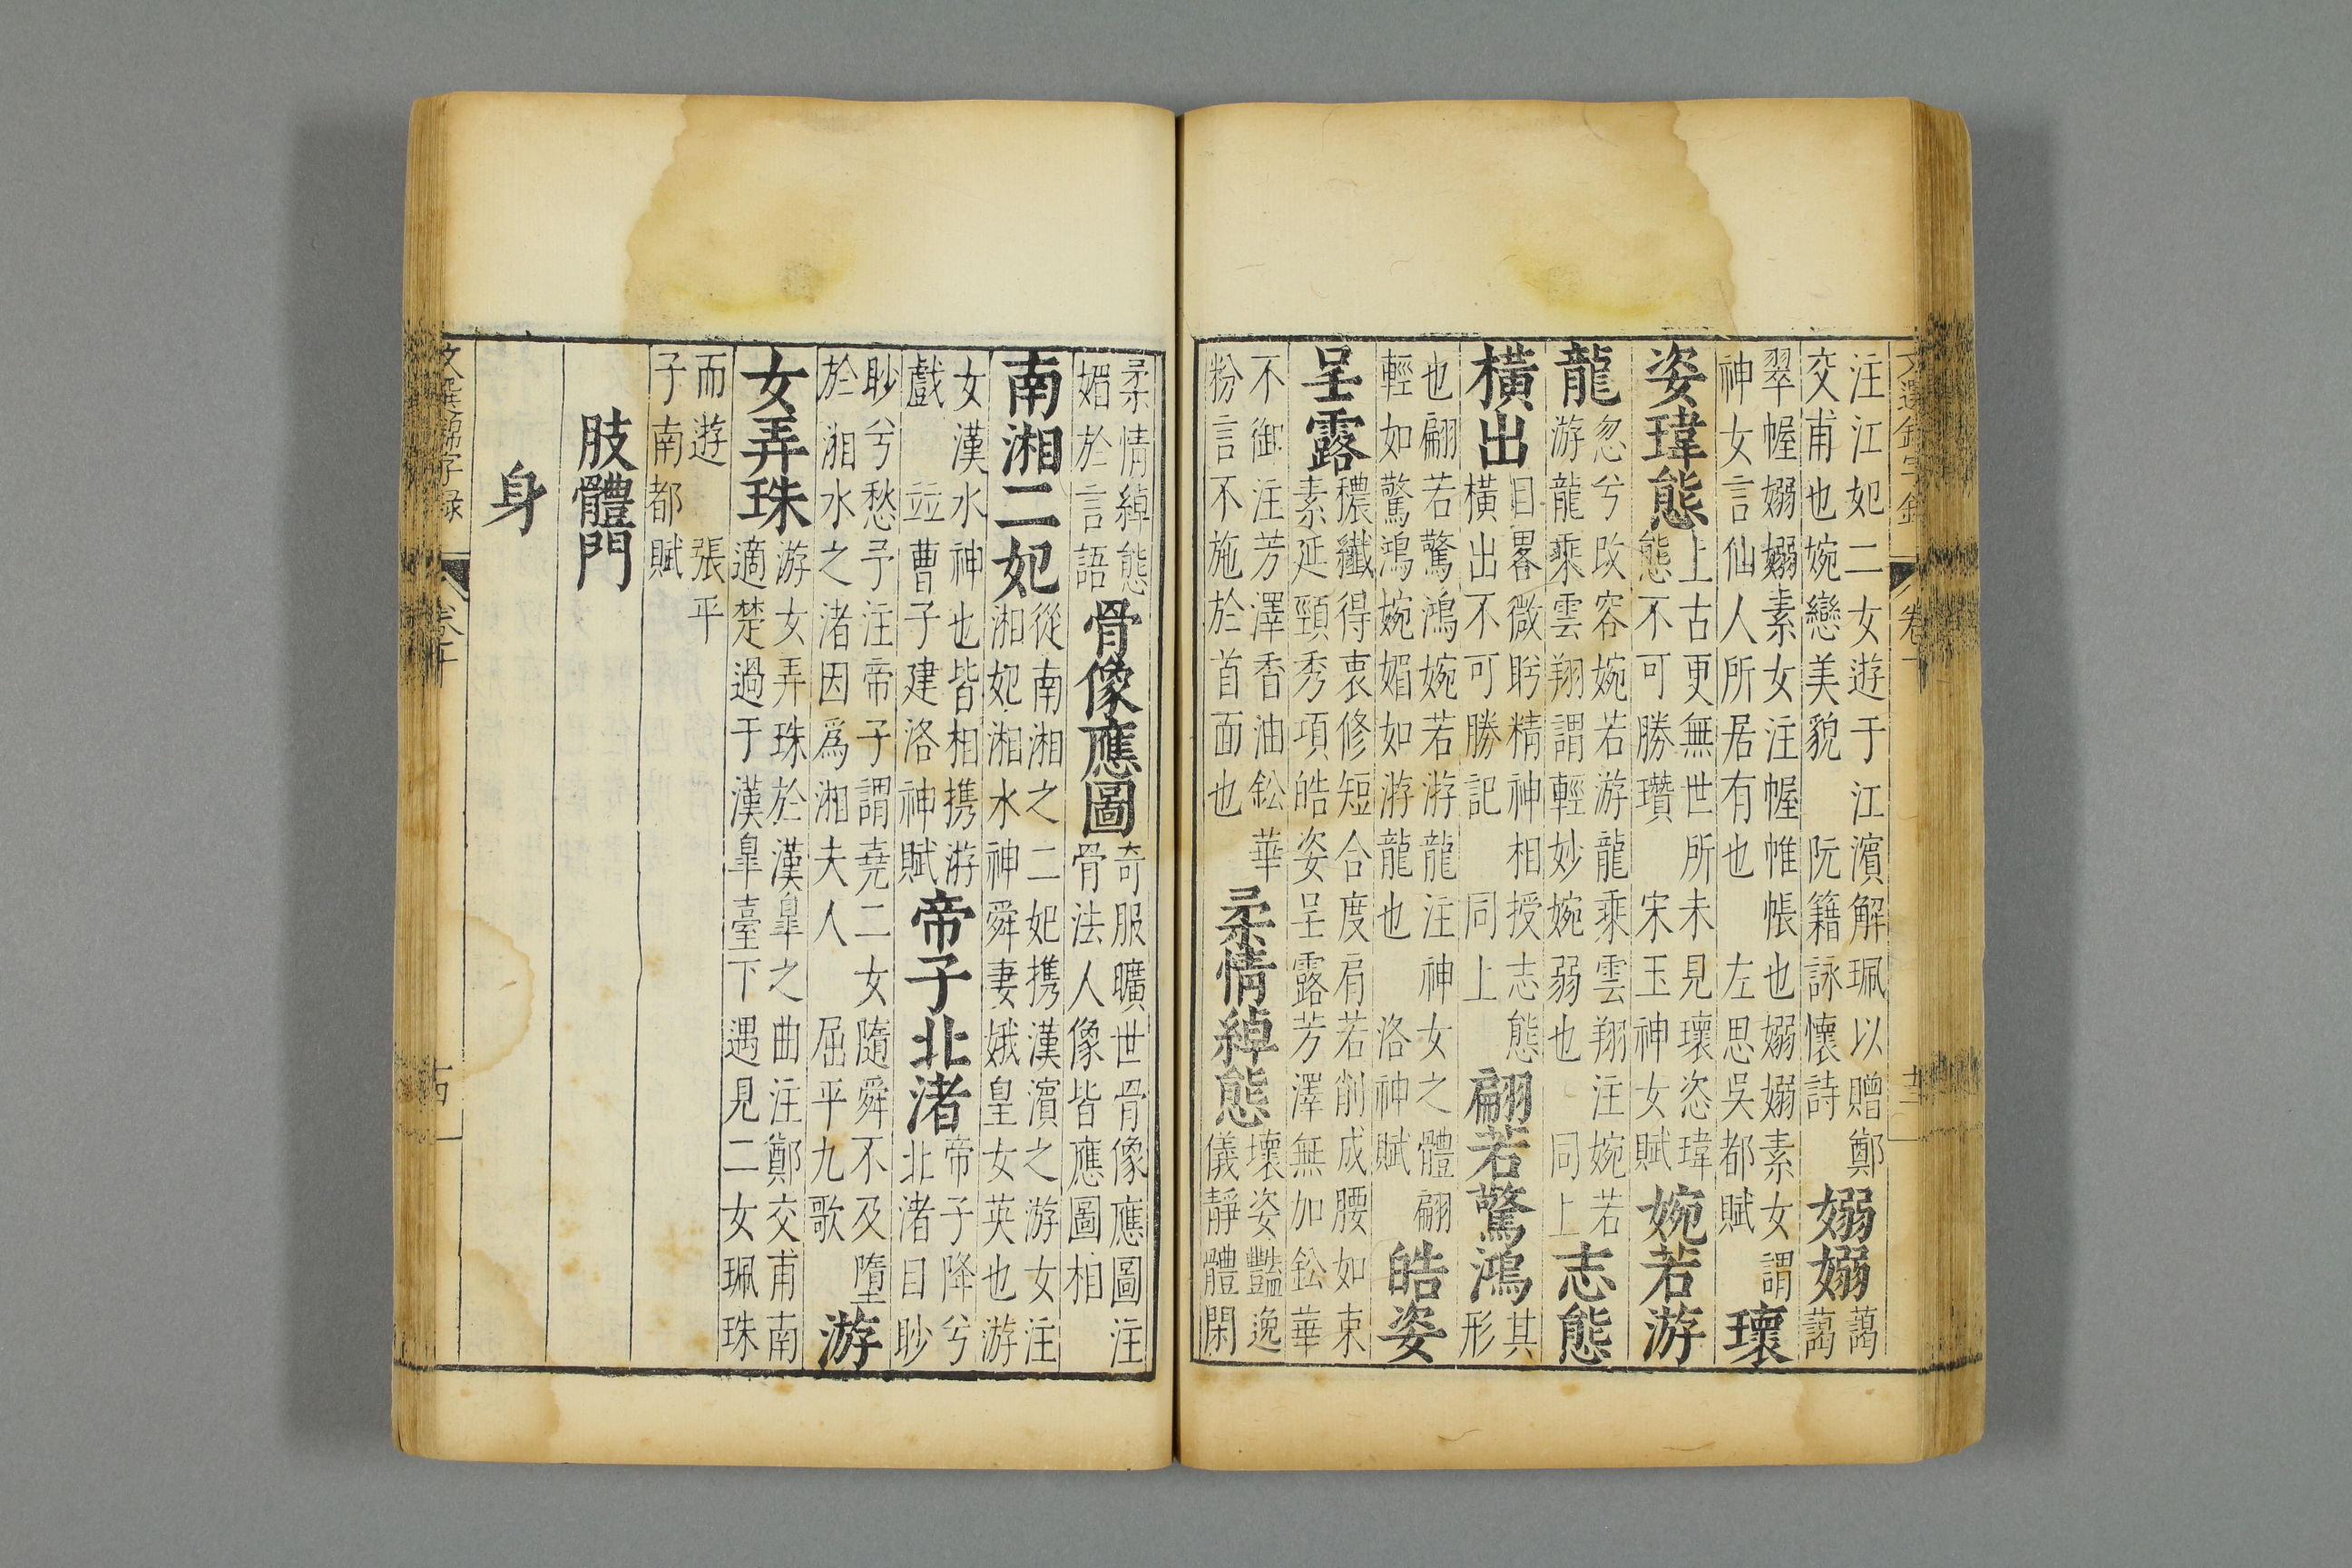 注江妃二女遊于江濱解珮以贈鄭
交甫也婉孌美貌　阮籍詠懷詩
嫋嫋
藹
藹
翠幄嫋嫋素女注幄帷帳也嫋嫋素女謂
神女言仙人所居有也　左思吳都賦
瓌
姿瑋態
上古更無世所未見瓌恣瑋
態不可勝瓚　宋玉神女賦
婉若游
龍
忽兮改容婉若游龍乘雲翔注婉若
游龍乘雲翔謂輕妙婉弱也　同上
志態
橫出
目畧微眄精神相授志態
橫出不可勝記　同上
翩若驚鴻
其
形
也翩若驚鴻婉若游龍注神女之體翩
輕如驚鴻婉媚如游龍也　洛神賦
皓姿
呈露
穠纖得衷修短合度肩若削成腰如束
素延頸秀項皓姿呈露芳澤無加鈆華
不御注芳澤香油鈆華
粉言不施於首面也
柔情綽態
瓌姿豔逸
儀靜體閑
柔情綽態
媚於言語
骨像應圖
奇服曠世骨像應圖注
骨法人像皆應圖相
南湘二妃
從南湘之二妃携漢濱之游女注
湘妃湘水神舜妻娥皇女英也游
女漢水神也皆相携游
戲　竝曹子建洛神賦
帝子北渚
帝子降兮
北渚目眇
眇兮愁予注帝子謂堯二女隨舜不及墮
於湘水之渚因爲湘夫人　屈平九歌
游
女弄珠
游女弄珠於漢臯之曲注鄭交甫南
適楚過于漢臯臺下遇見二女珮珠
而遊　張平
子南都賦
肢體門
身
文選錦字錄
卷十